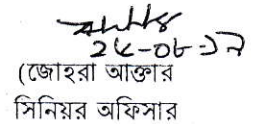 ২৫-০৮-১৯
(জোহরা আক্তার
সিনিয়র অফিসার